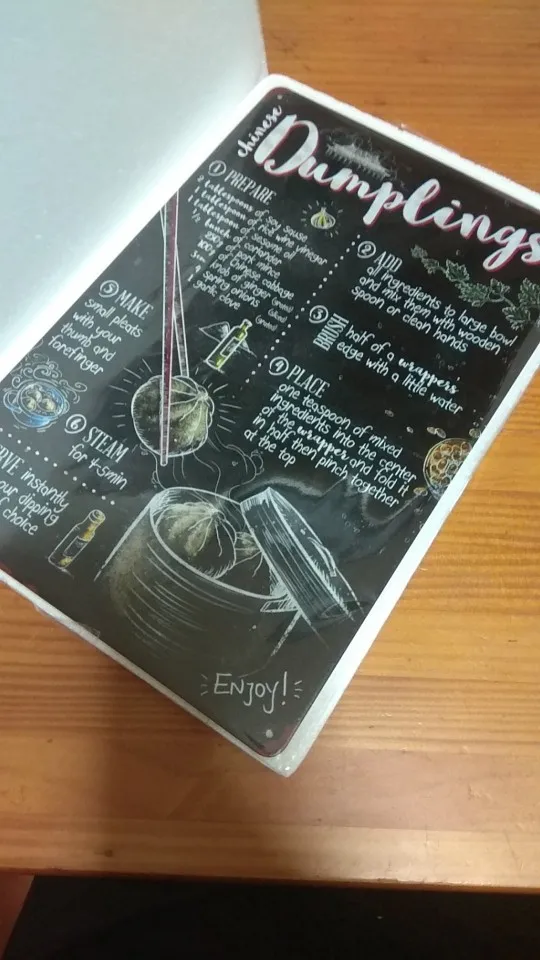 chinese
Dumplings
① PREPARE
2 tablespoons of soy sause
1 tablespoon of red wine vinegar
1 tablespoon of sesame oil
½ bunch of coriander
250g of pork mince
100g of chinese cabbage
3cm knob of ginger (grated)
spring onions (sliced)
garlic clove (grated)
② ADD
all ingredients to large bowl
and mix them with wooden
spoon or clean hands
③ BRUSH
half of a wrappers
edge with a little water
④ PLACE
one teaspoon of mixed
ingredients into the center
of the wrapper and fold it
in half then pinch together
at the top
⑤ MAKE
small pleats
with your
thumb and
forefinger
⑥ STEAM
for 4-5min
RVE instantly
our dipping
choice
ENJOY!